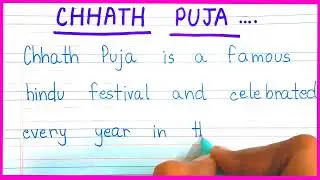 CHHATH PUJA ....
Chhath Puja is a famous
hindu festival and celebrated
every year in